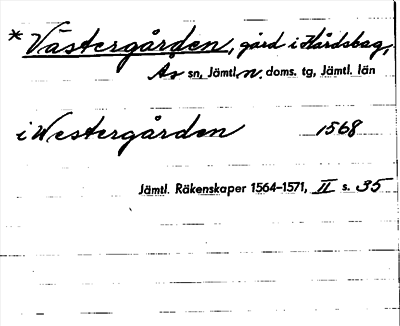 * Västergården, gård i Hårdsbag,
Ås sn, Jämtl. n. doms. tg, Jämtl. län
i Westergården 1568
Jämtl. Räkenskaper 1564–1571, II s. 35